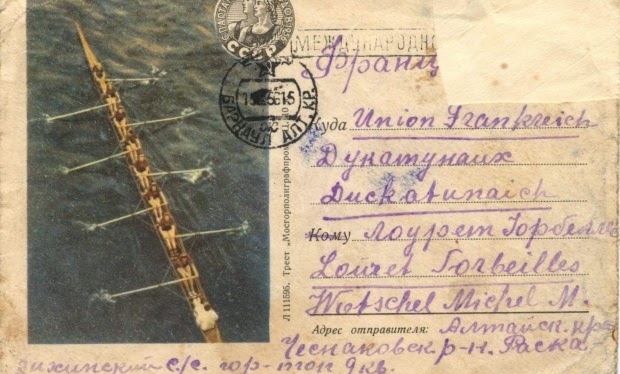 СПАРТАКИАДА НАРОДОВ
СССР
МЕЖДУНАРОДНО
Франц
БАРНАУЛ АЛТ. КР.
Куда Union Frankreich
Дукатунаих
Duckatunaich
Кому Лоурет Горбелле
Louret Gorbeilles
Wotschel Michel M.
Адрес отправителя: Алтайск. кр.
Чеснаковск. р-н. Раска
зихинский с/с. гор-топ 9 кв.
Л 111595. Трест „Мосгорполиграфпром